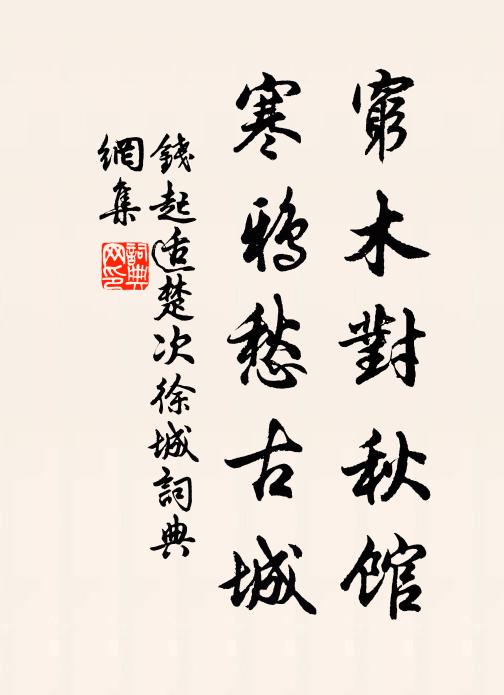 窮木對秋館
寒鴉愁古城
錢起適楚次徐城詞典
網集
詞典網印